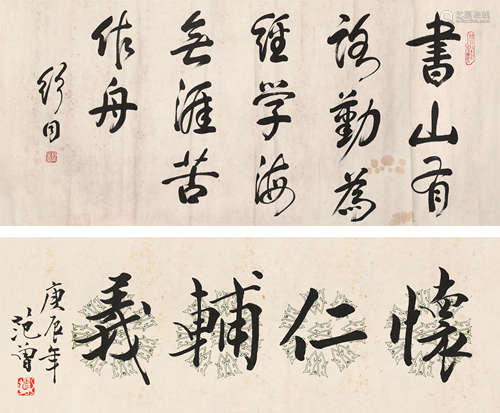 書山有
路勤為
經学海
無涯苦
作舟
舒同
懷仁輔義
庚辰年
范曾